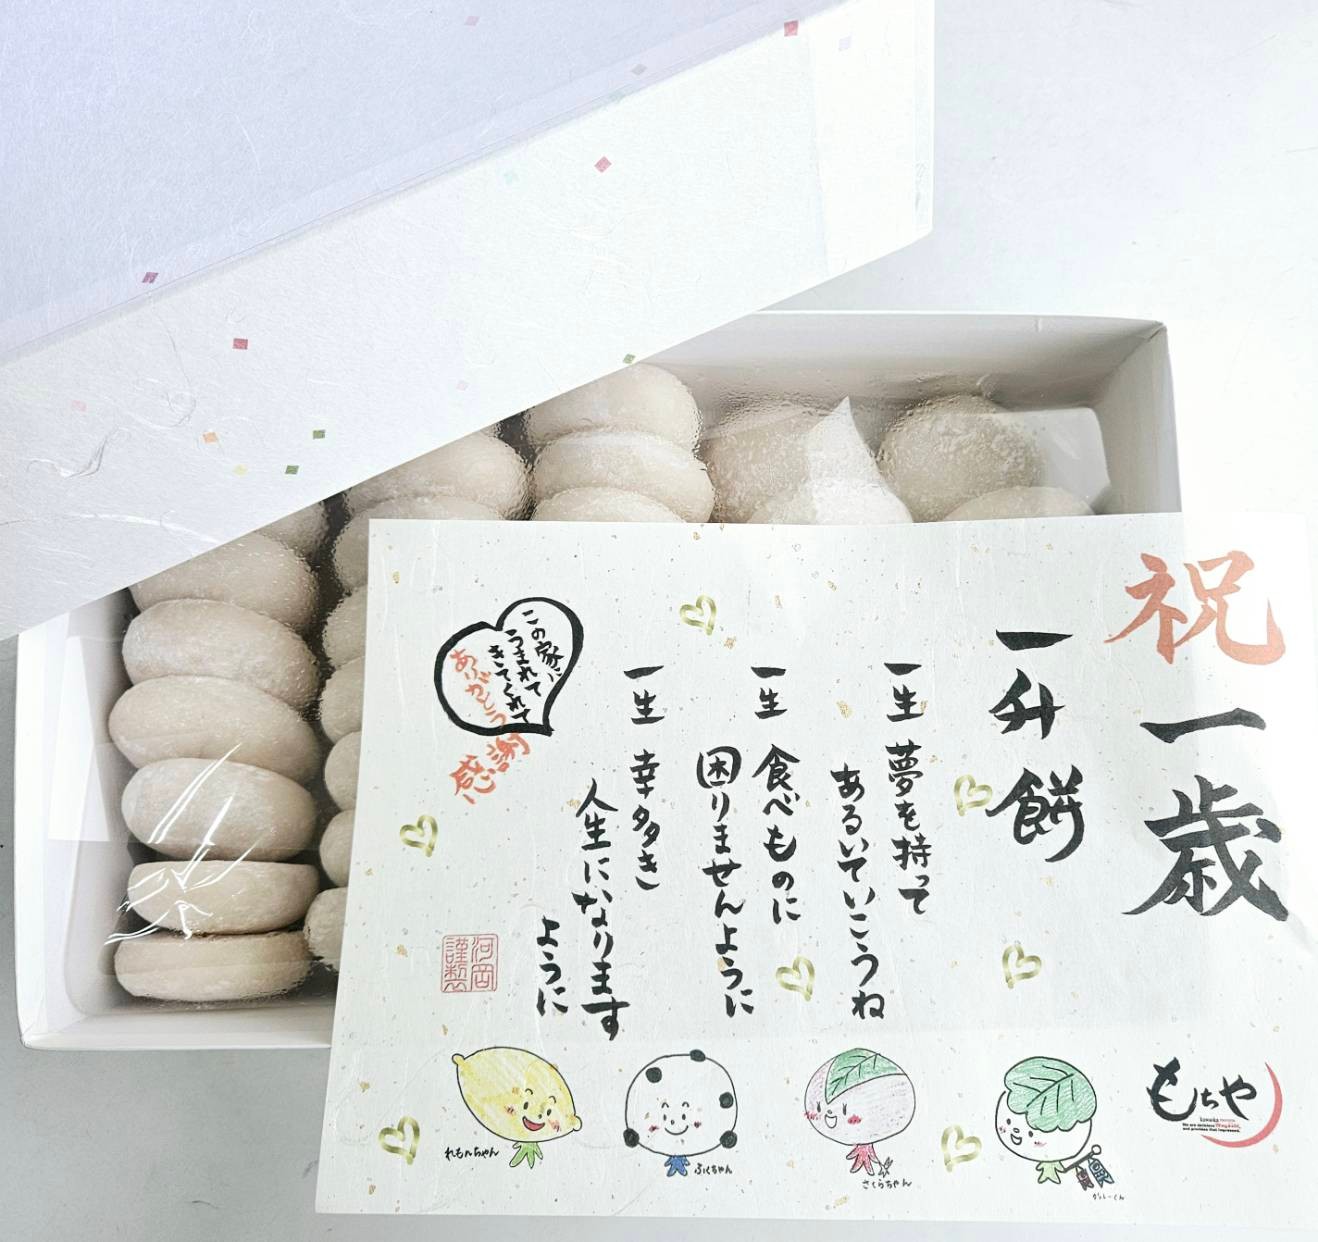 祝一歳
一升餅
一生 夢を持って
あるいていこうね
一生 食べものに
困りませんように
一生 幸多き
人生になります
ように
この家に
うまれて
きてくれて
ありがとう
感謝
河岡
謹製
れもんちゃん
ふくちゃん
さくらちゃん
もちや